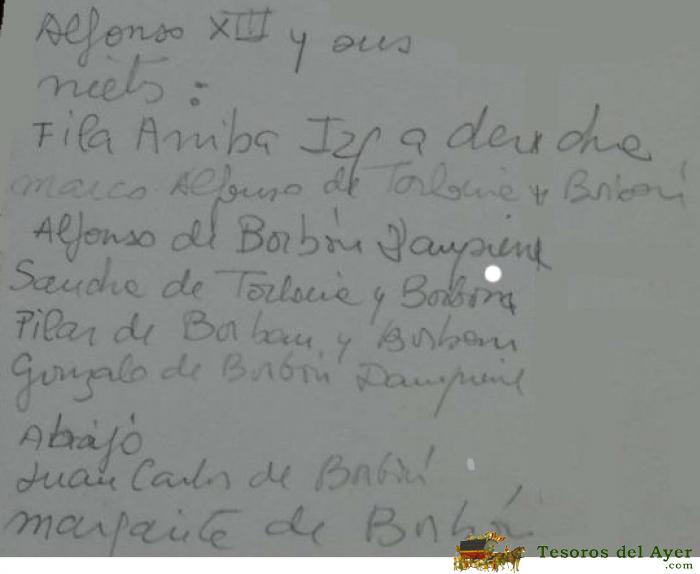 Alfonso XIII y sus
niets:
Fila Arriba Izq a derecha
Marco Alfonso de Torlonia y Borbón
Alfonso de Borbón Dampierre
Sandra de Torlonia y Borbón
Pilar de Borbon y Borbon
Gonzalo de Borbón Dampierre
Abajo
Juan Carlos de Borbón
Margarita de Borbón
Tesoros del Ayer
.com